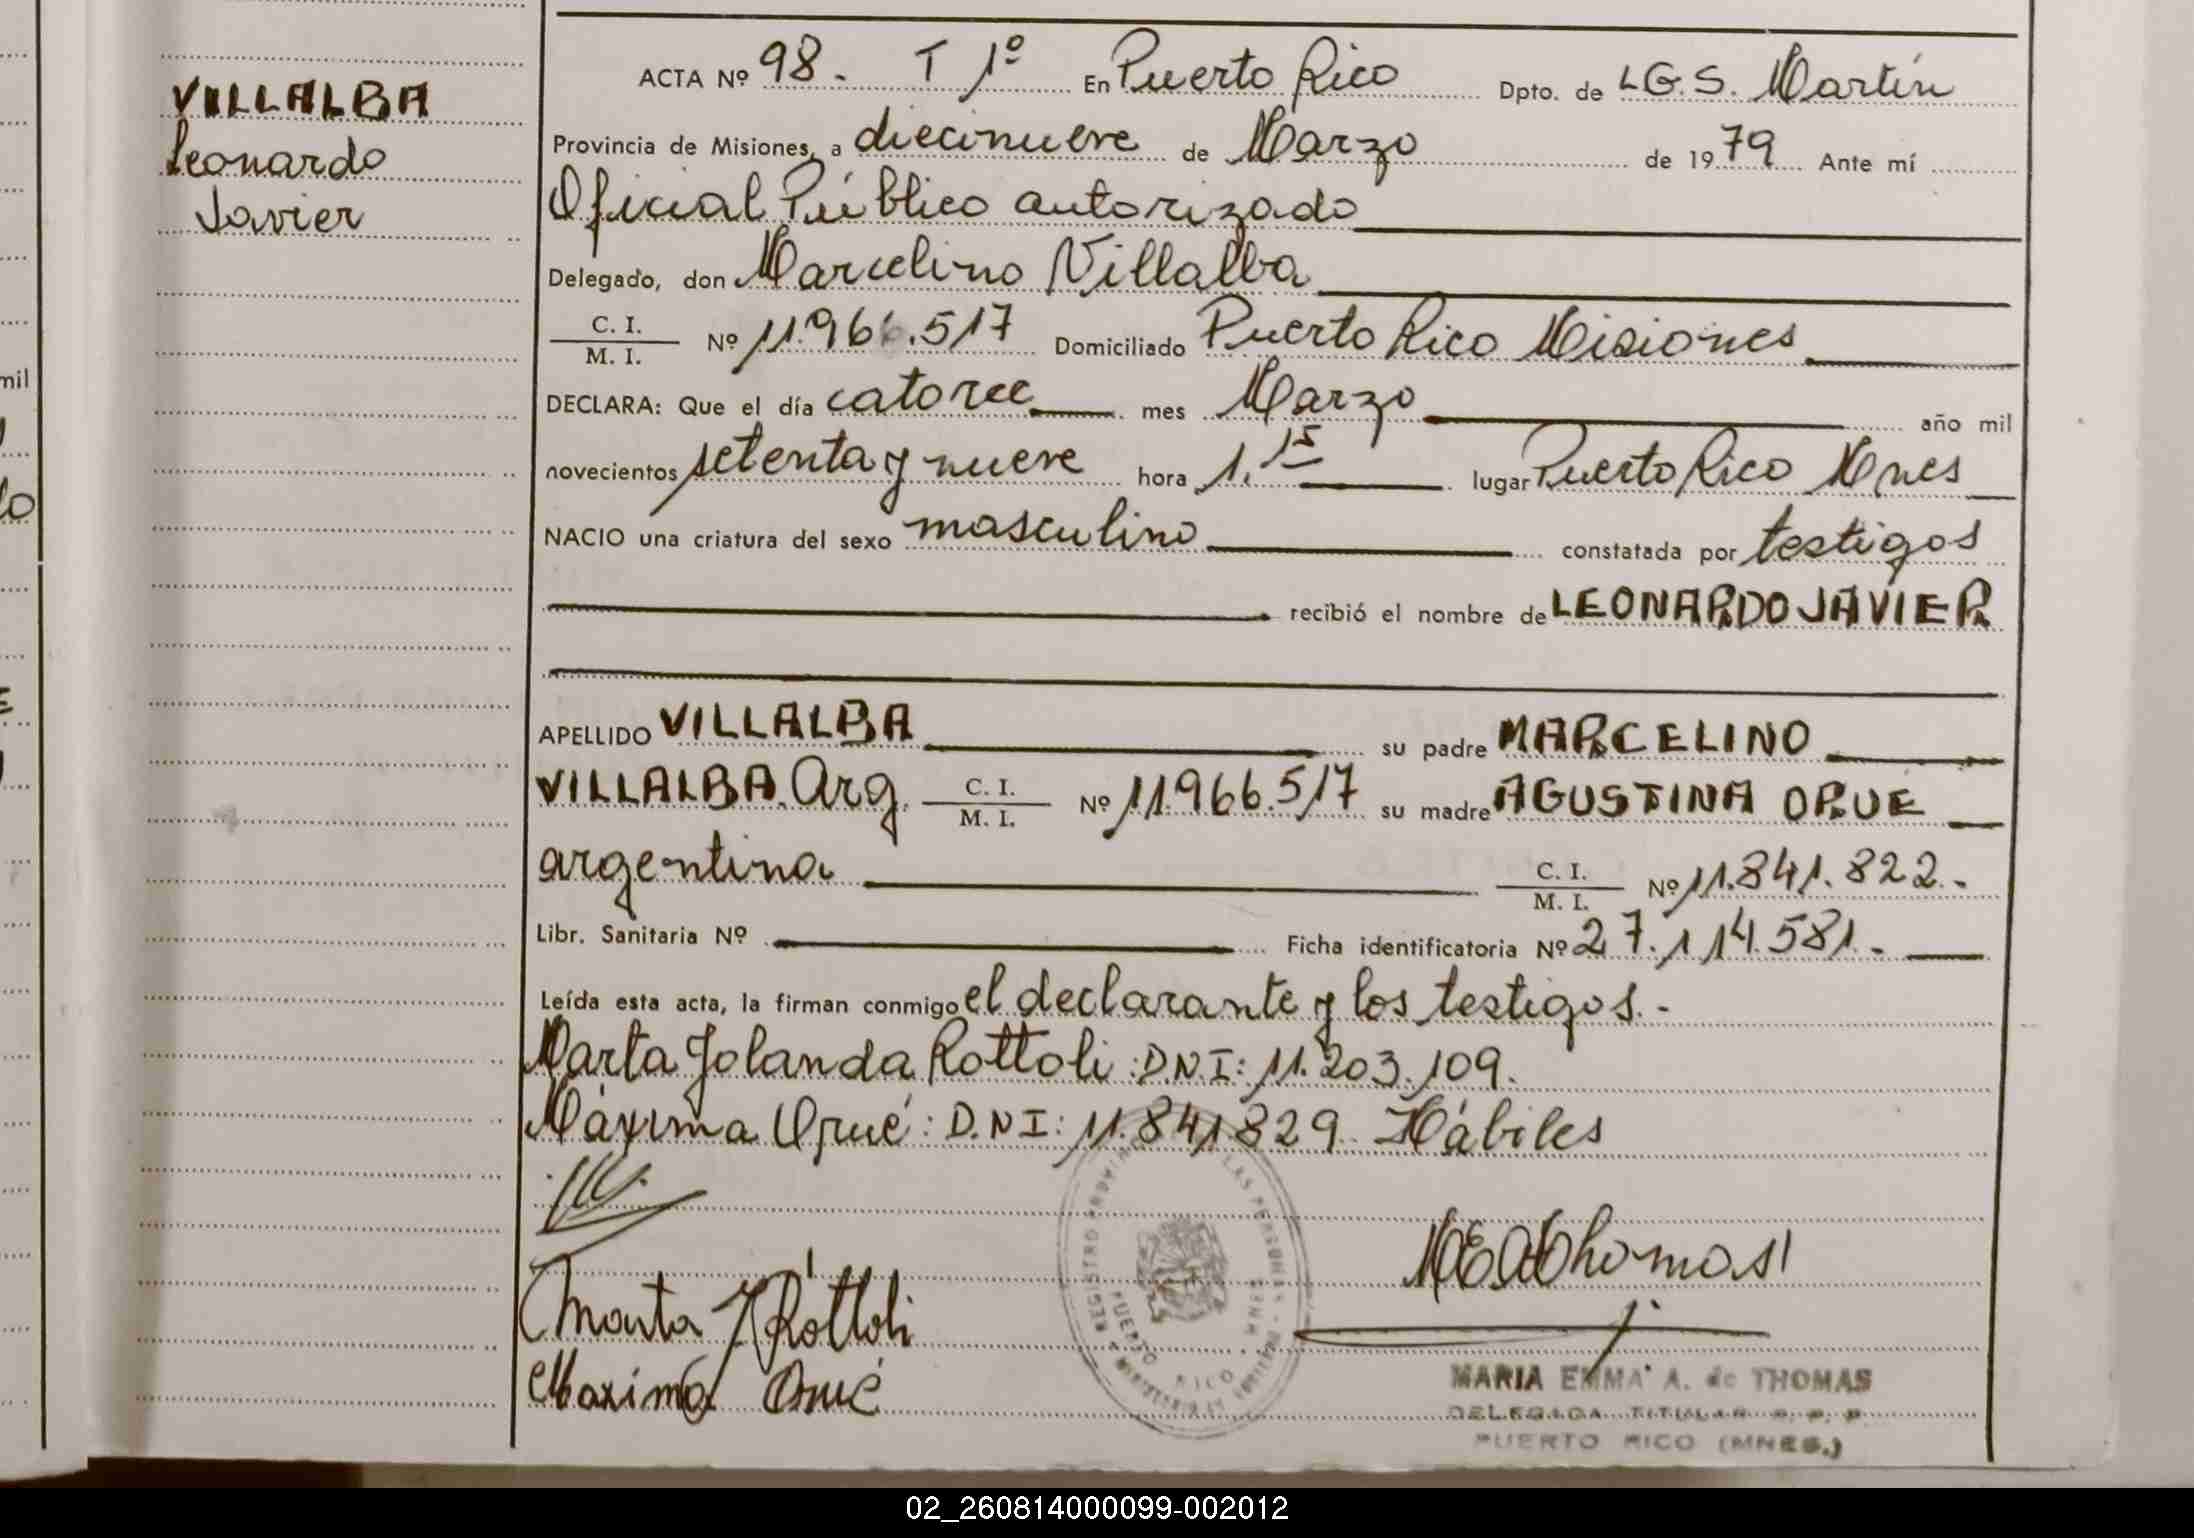 VILLALBA
Leonardo
Javier
ACTA Nº 98. T 1º En Puerto Rico Dpto. de L.G.S. Martín
Provincia de Misiones, a diecinueve de Marzo de 1979 Ante mí
Oficial Público autorizado
Delegado, don Marcelino Villalba
C. I.
M. I. Nº 11.966.517 Domiciliado Puerto Rico Misiones
DECLARA: Que el día catorce mes Marzo año mil
novecientos setenta y nueve hora 1.15 lugar Puerto Rico Mnes
NACIO una criatura del sexo masculino constatada por testigos
recibió el nombre de LEONARDO JAVIER
APELLIDO VILLALBA su padre MARCELINO
VILLALBA. Arg. C. I. M. I. Nº 11.966.517 su madre AGUSTINA ORUE
argentina C. I. M. I. Nº 11.841.822.-
Libr. Sanitaria Nº Ficha identificatoria Nº 27.114.581.-
Leída esta acta, la firman conmigo el declarante y los testigos.-
Marta Yolanda Rottoli: D.N.I: 11.203.109.
Máxima Orué: D.N.I: 11.841.829. Hábiles
REGISTRO PROVINCIAL DE LAS PERSONAS
PUERTO RICO - MNES
M E A Thomas
Marta Y Rottoli
Maxima Orué
MARIA EMMA A. de THOMAS
DELEGADA TITULAR R. P. P.
PUERTO RICO (MNES.)
mil
lo
02_260814000099-002012